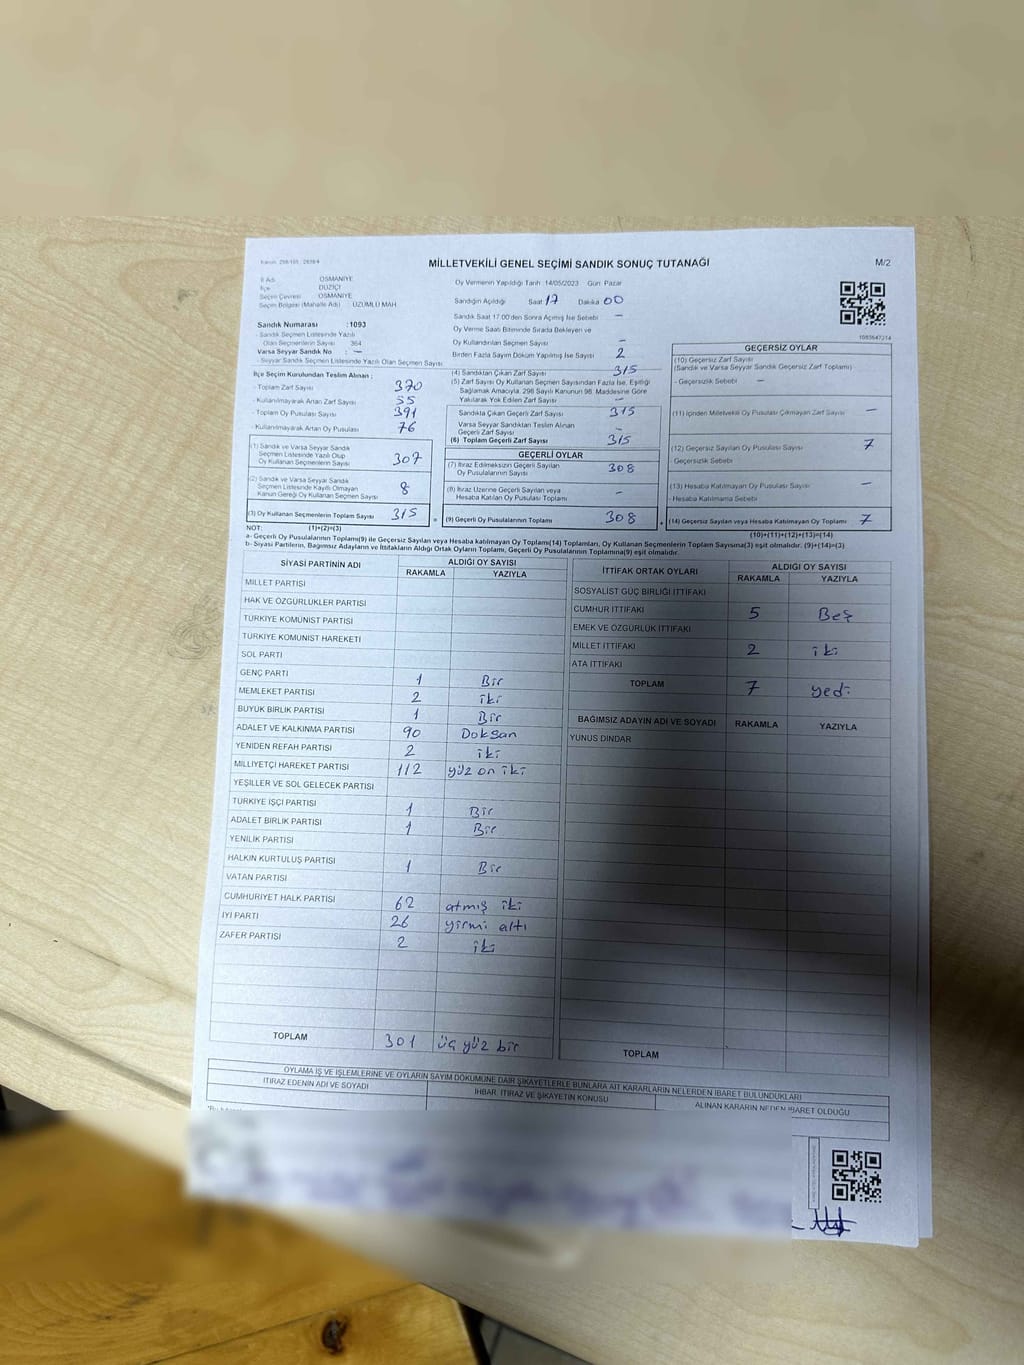 MİLLETVEKİLİ GENEL SEÇİMİ SANDIK SONUÇ TUTANAĞI
M/2
İl Adı OSMANİYE
İlçe DÜZİÇİ
Seçim Çevresi OSMANİYE
Seçim Bölgesi (Mahalle Adı) : ÜZÜMLÜ MAH.
Sandık Numarası : 1093
- Sandık Seçmen Listesinde Yazılı
Olan Seçmenlerin Sayısı 364
Varsa Seyyar Sandık No : —
- Seyyar Sandık Seçmen Listesinde Yazılı Olan Seçmen Sayısı
İlçe Seçim Kurulundan Teslim Alınan ;
- Toplam Zarf Sayısı 370
- Kullanılmayarak Artan Zarf Sayısı 55
- Toplam Oy Pusulası Sayısı 391
- Kullanılmayarak Artan Oy Pusulası 76
(1) Sandık ve Varsa Seyyar Sandık
Seçmen Listesinde Yazılı Olup
Oy Kullanan Seçmenlerin Sayısı 307
(2) Sandık ve Varsa Seyyar Sandık
Seçmen Listesinde Kayıtlı Olmayan
Kanun Gereği Oy Kullanan Seçmen Sayısı 8
(3) Oy Kullanan Seçmenlerin Toplam Sayısı 315
(1)+(2)=(3)
Oy Vermenin Yapıldığı Tarih 14/05/2023 Gün Pazar
Sandığın Açıldığı Saat 17 Dakika 00
Sandık Saat 17:00'den Sonra Açılmış İse Sebebi —
Oy Verme Saati Bitiminde Sırada Bekleyen ve
Oy Kullandırılan Seçmen Sayısı —
Birden Fazla Sayım Döküm Yapılmış İse Sayısı 2
(4) Sandıktan Çıkan Zarf Sayısı 315
(5) Zarf Sayısı Oy Kullanan Seçmen Sayısından Fazla İse, Eşitliği
Sağlamak Amacıyla, 298 Sayılı Kanunun 98. Maddesine Göre
Yakılarak Yok Edilen Zarf Sayısı —
Sandıkta Çıkan Geçerli Zarf Sayısı 315
Varsa Seyyar Sandıktan Teslim Alınan
Geçerli Zarf Sayısı —
(6) Toplam Geçerli Zarf Sayısı 315
GEÇERLİ OYLAR
(7) İtiraz Edilmeksizin Geçerli Sayılan
Oy Pusulalarının Sayısı 308
(8) İtiraz Üzerine Geçerli Sayılan veya
Hesaba Katılan Oy Pusulası Toplamı —
(9) Geçerli Oy Pusulalarının Toplamı 308
GEÇERSİZ OYLAR
(10) Geçersiz Zarf Sayısı
(Sandık ve Varsa Seyyar Sandık Geçersiz Zarf Toplamı)
- Geçersizlik Sebebi —
(11) İçinden Milletvekili Oy Pusulası Çıkmayan Zarf Sayısı —
(12) Geçersiz Sayılan Oy Pusulası Sayısı 7
Geçersizlik Sebebi
(13) Hesaba Katılmayan Oy Pusulası Sayısı —
- Hesaba Katılmama Sebebi
(14) Geçersiz Sayılan veya Hesaba Katılmayan Oy Toplamı 7
(10)+(11)+(12)+(13)=(14)
NOT:
a- Geçerli Oy Pusulalarının Toplamı(9) ile Geçersiz Sayılan veya Hesaba katılmayan Oy Toplamı(14) Toplamları, Oy Kullanan Seçmenlerin Toplam Sayısına(3) eşit olmalıdır. (9)+(14)=(3)
b- Siyasi Partilerin, Bağımsız Adayların ve İttifakların Aldığı Ortak Oyların Toplamı, Geçerli Oy Pusulalarının Toplamına(9) eşit olmalıdır.
SİYASİ PARTİNİN ADI ALDIĞI OY SAYISI
RAKAMLA YAZIYLA
MİLLET PARTİSİ
HAK VE ÖZGÜRLÜKLER PARTİSİ
TÜRKİYE KOMÜNİST PARTİSİ
TÜRKİYE KOMÜNİST HAREKETİ
SOL PARTİ
GENÇ PARTİ 1 Bir
MEMLEKET PARTİSİ 2 iki
BÜYÜK BİRLİK PARTİSİ 1 Bir
ADALET VE KALKINMA PARTİSİ 90 Doksan
YENİDEN REFAH PARTİSİ 2 iki
MİLLİYETÇİ HAREKET PARTİSİ 112 yüz on iki
YEŞİLLER VE SOL GELECEK PARTİSİ
TÜRKİYE İŞÇİ PARTİSİ 1 Bir
ADALET BİRLİK PARTİSİ 1 Bir
YENİLİK PARTİSİ
HALKIN KURTULUŞ PARTİSİ 1 Bir
VATAN PARTİSİ
CUMHURİYET HALK PARTİSİ 62 atmış iki
İYİ PARTİ 26 yirmi altı
ZAFER PARTİSİ 2 iki
TOPLAM 301 üç yüz bir
İTTİFAK ORTAK OYLARI ALDIĞI OY SAYISI
RAKAMLA YAZIYLA
SOSYALİST GÜÇ BİRLİĞİ İTTİFAKI
CUMHUR İTTİFAKI 5 Beş
EMEK VE ÖZGÜRLÜK İTTİFAKI
MİLLET İTTİFAKI 2 iki
ATA İTTİFAKI
TOPLAM 7 yedi
BAĞIMSIZ ADAYIN ADI VE SOYADI RAKAMLA YAZIYLA
YUNUS DİNDAR
TOPLAM
OYLAMA İŞ VE İŞLEMLERİNE VE OYLARIN SAYIM DÖKÜMÜNE DAİR ŞİKAYETLERLE BUNLARA AİT KARARLARIN NELERDEN İBARET BULUNDUKLARI
İTİRAZ EDENİN ADI VE SOYADI
İHBAR, İTİRAZ VE ŞİKAYETİN KONUSU
ALINAN KARARIN NEDEN İBARET OLDUĞU